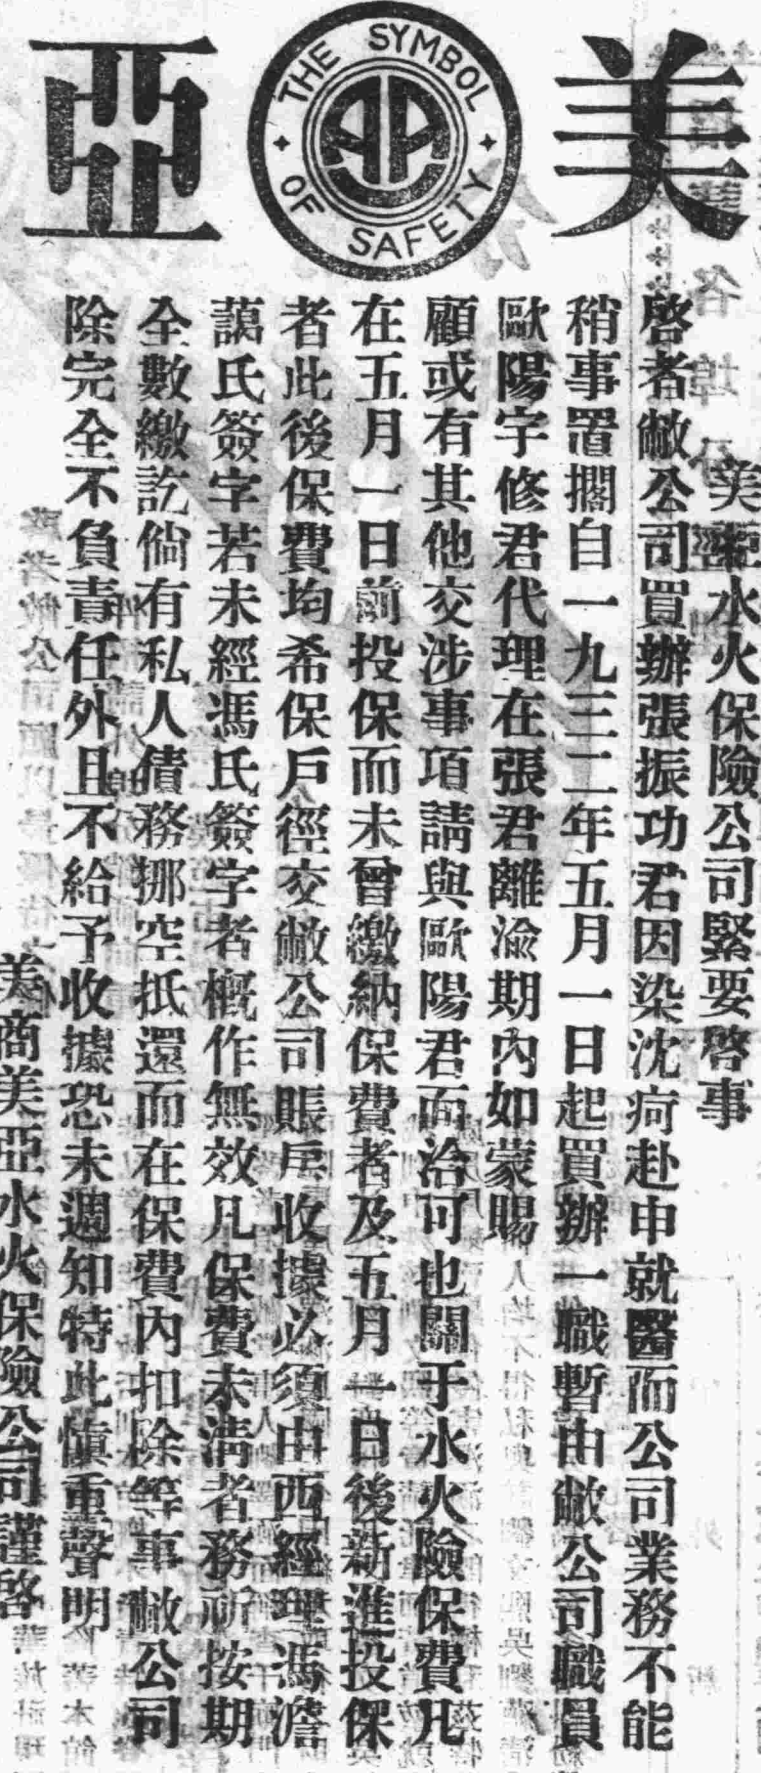 美亞
THE SYMBOL OF SAFETY
AAU
美亞水火保險公司緊要啓事
啓者敝公司買辦張振功君因染沈疴赴申就醫而公司業務不能
稍事置擱自一九三二年五月一日起買辦一職暫由敝公司職員
歐陽宇修君代理在張君離渝期內如蒙賜
顧或有其他交涉事項請與歐陽君面洽可也關于水火險保費凡
在五月一日前投保而未曾繳納保費者及五月一日後新進投保
者此後保費均希保戶徑交敝公司賬房收據必須由西經理馮
藹氏簽字若未經馮氏簽字者概作無效凡保費未清者務祈按期
全數繳訖倘有私人債務挪空抵還而在保費內扣除等事敝公司
除完全不負責任外且不給予收據恐未週知特此愼重聲明
美商美亞水火保險公司謹啓